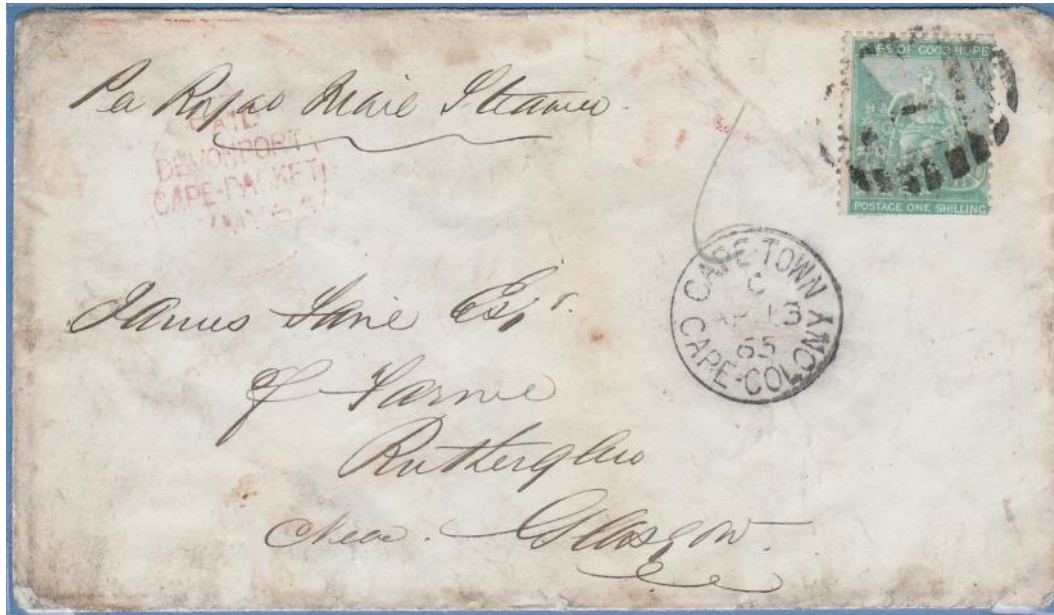 Per Royal Mail Steamer.
PAID
DEVONPORT
CAPE-PACKET
MY 5
OF GOOD HOPE
POSTAGE ONE SHILLING
CAPE-TOWN
C
AP 13
65
CAPE-COLONY
James Esqr.
of
Rutherglen
Near. Glasgow.